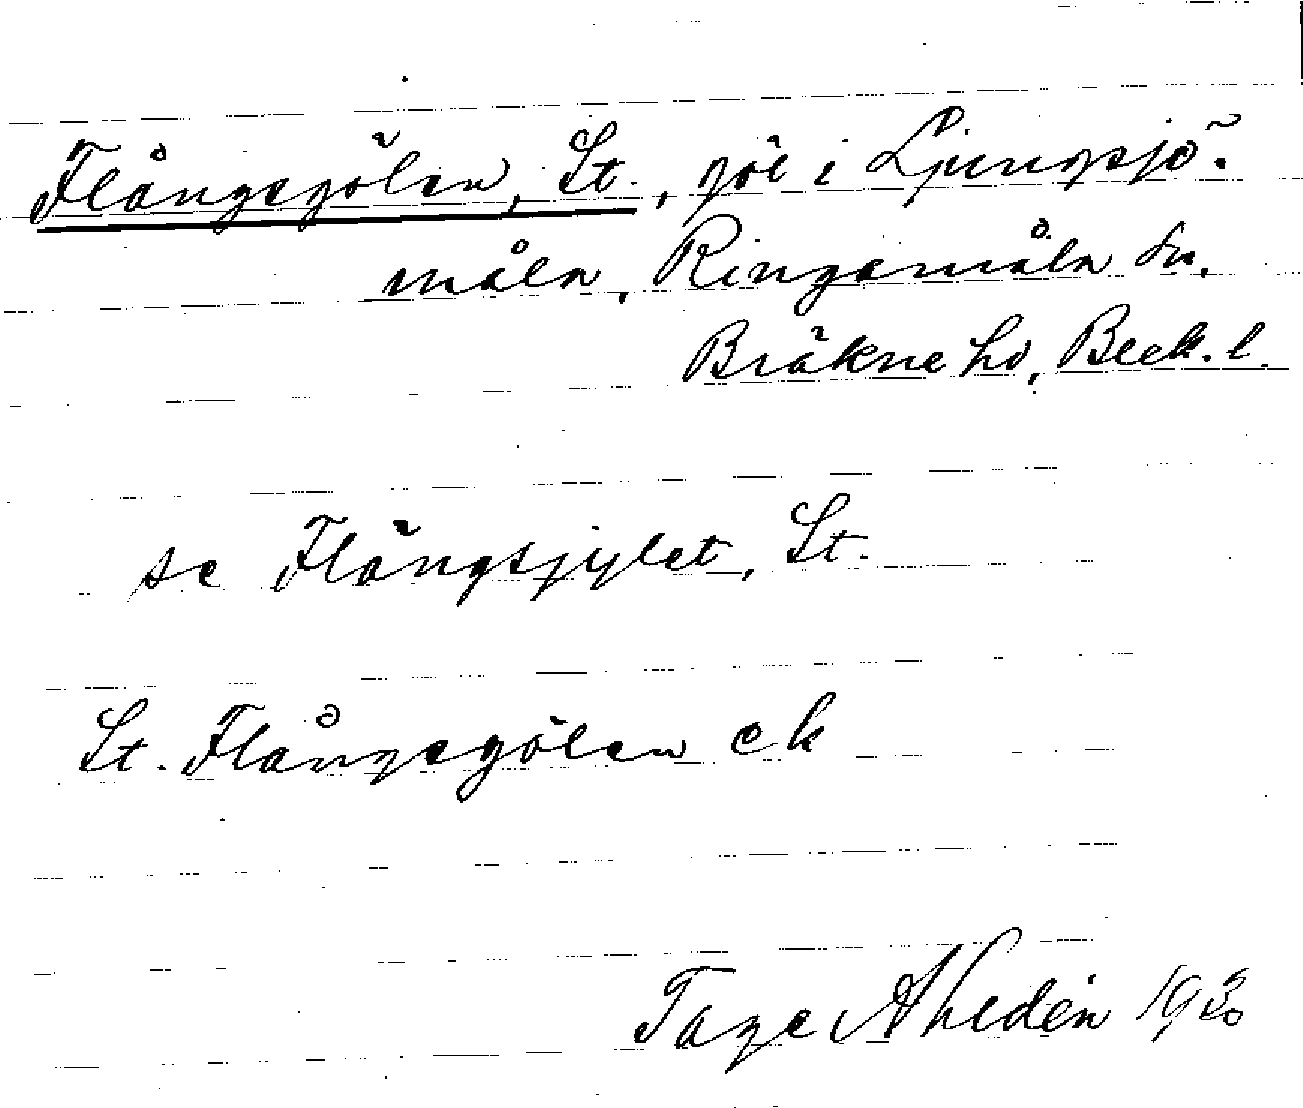 Flångegölen, St., göl i Ljungsjö-
måla, Ringamåla sn,
Bräkne hd, Blek. l.
se Flångsjylet, St.
St. Flångegölen ek
Tage Ahldén 1930